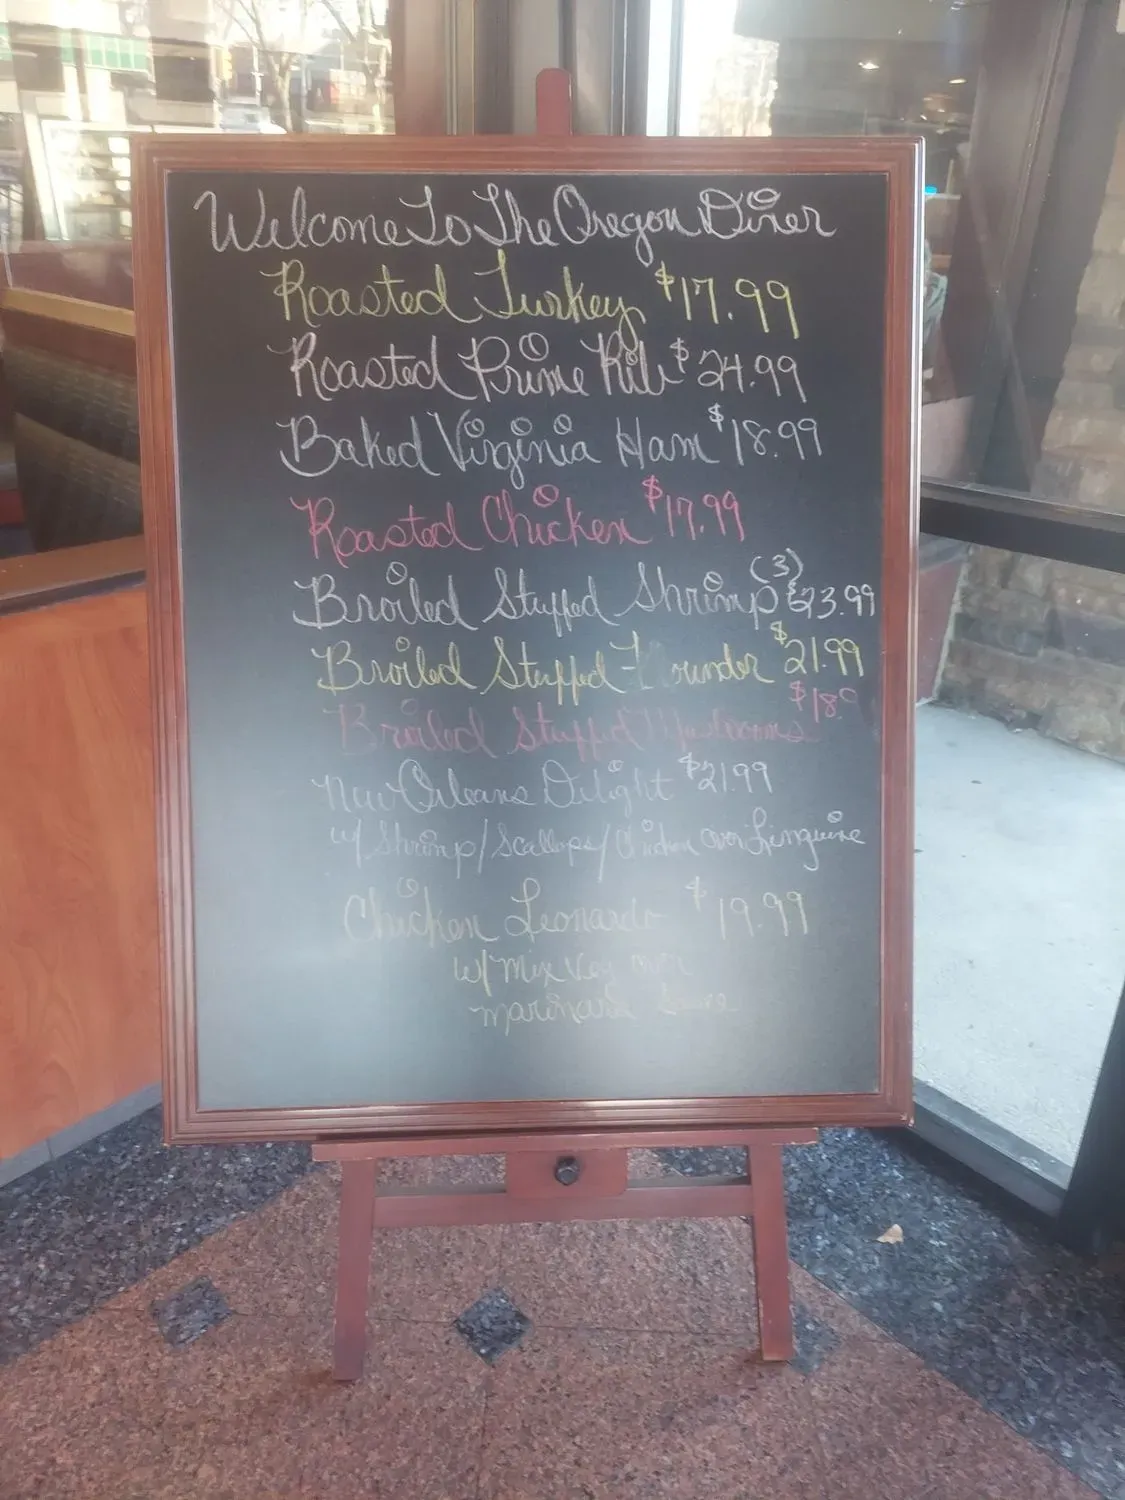 Welcome To The Oregon Diner
Roasted Turkey $17.99
Roasted Prime Rib $24.99
Baked Virginia Ham $18.99
Roasted Chicken $17.99
Broiled Stuffed Shrimp (3) $23.99
Broiled Stuffed Flounder $21.99
Broiled Stuffed Mushrooms $18.9
New Orleans Delight $21.99
w/ Shrimp/Scallops/Chicken over Linguine
Chicken Leonardo $19.99
w/ Mix Veg over
marinara Sauce